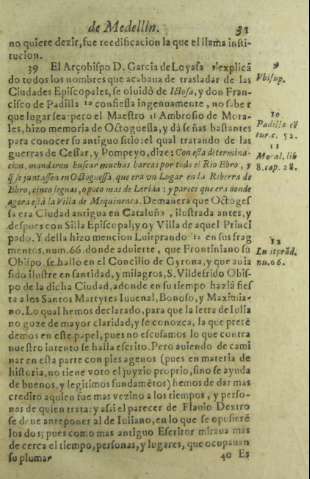 de Medellin. 32
no quiere dezir, fue reedificacion la que el llama insti-
tucion.
39 El Arçobispo D. Garcia de Loyasa 9 explicã
do todos los nombres que acabana de trasladar de las
Ciudades Episcopales, se oluidò de Ictosa, y don Fran-
cisco de Padilla 10 confiessa ingenuamente, no saber
que lugar sea: pero el Maestro 11 Ambrosio de Mora-
les, hizo memoria de Octogessa, y dà señas bastantes
para conocer su antiguo sitio: el qual tratando de las
guerras de Cessar, y Pompeyo, dize; Con esta determina-
cion, mandaron buscar muchas barcas por todo el Rio Ebro, y
q̃ se juntassen en Octogessa, que era vn Lugar en la Ribera de
Ebro, cinco leguas, o poco mas de Lerida: y parece que era donde
agora està la Villa de Mequinença. De manera que Octoges-
sa era Ciudad antigua en Cataluña, ilustrada antes, y
despues con Silla Episcopal; y oy Villa de aquel Princi
pado. Y della hizo mencion Luitprando 12 en sus frag
mentos, num. 66. donde aduierte, que Frontiniano su
Obispo, se hallo en el Concilio de Gyrona, y que auia
sido ilustre en santidad, y milagros, S. Vildefrido Obis-
po de la dicha Ciudad, adonde en su tiempo hazia fies-
ta a los Santos Martyres Iuuenal, Bonoso, y Maximia-
no. Lo qual hemos declarado, para que la letra de Iulia
no goze de mayor claridad, y se conozca, la que prete
demos en este papel, pues no escusamos lo que contra
nuestro intento se halla escrito. Pero auiendo de cami
nar en esta parte con pies agenos (pues en materia de
historia, no tiene voto el juyzio proprio, sino se ayuda
de buenos, y legitimos fundamẽtos) hemos de dar mas
credito a quien fue mas vezino a los tiempos, y perso-
nas de quien trata: y assi el parecer de Flauio Dextro
se deue anteponer al de Iuliano, en lo que se opusierẽ
los dos, pues como mas antiguo Escritor miraua mas
de cerca el tiempo, personas, y lugares, que ocupauan
su pluma.
40 Es
9
Vbi sup.
10
Padilla cẽ
tur. c. 52.
11
Moral. lib
8. cap. 28.
12
nu. 66.